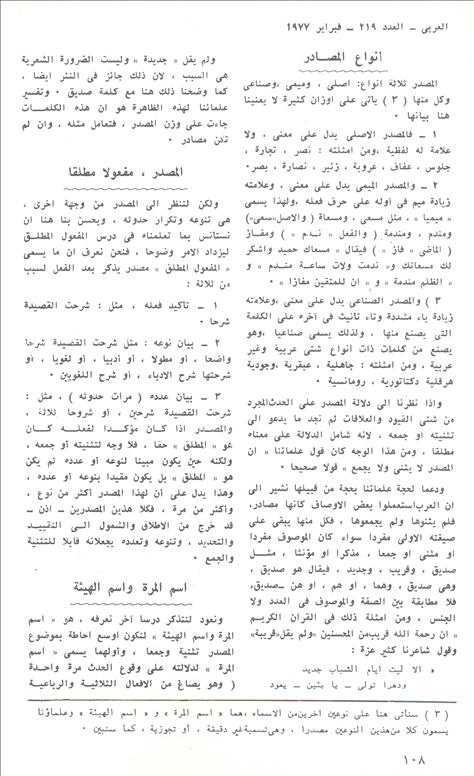 العربي ــ العدد ٢١٩ ــ فبراير ١٩٧٧
أنواع المصـادر
المصدر ثلاثة أنواع: أصلى ، وميمى ،وصناعى
وكل منها ( ٣ ) يأتى على أوزان كثيرة لا يعنينا
هنا بيانها .
١ ــ فالمصدر الاصلى يدل على معنى ، ولا
علامة له لفظية ،ومن أمثلته : نصر ، تجارة ،
جلوس ، عفاف ، عروبة ، زئير ، نصارة ، بصر.
٢ ــ والمصدر الميمى يدل على معنى ، وعلامته
زيادة ميم فى أوله على حرف فعله ،ولهذا يسمى
« ميميا » ، مثل مسعى ، ومسعاة ( والاصل«سعى»)
ومندم ، ومندمة ( والفعل « نـدم » ) ومفـاز
( الماضى « فاز ») فيقال «مسعاك حميد وأشكر
لك مسعاتك و« ندمت ولات ساعـة مندم » و
« الظلم مندمة » و « ان للمتقين مفازا » .
٣ ) والمصدر الصناعى يدل على معنى ،وعلامته
زيادة ياء مشددة وتاء تأنيث فى آخره على الكلمة
التى يصنع منها ، ولذلك يسمى صناعيا ،وهو
يصنع من كلمات ذات أنواع شتى عربية وغير
عربية ، ومن أمثلته : جاهلية ، عبقرية ،وجودية
هرقلية دكتاتورية ، رومانسية .
واذا نظرنا الى دلالة المصدر على الحدثالمجرد
من شتى القيود والعلاقات لم نجد ما يدعو الى
تثنيته أو جمعه ، لانه شامل الدلالة على معناه
مطلقا ، ومن هذا الوجه كان قول علمائنا « ان
المصدر لا يثنى ولا يجمع » قولا صحيحا .
ودعما لحجة علمائنا بحجة من قبيلها نشير الى
ان العرباستعملوا بعض الاوصاف كأنها مصادر،
فلم يثنوها ولم يجمعوها ، فكل منها يبقى على
صيغته الاولى مفردا سواء كان الموصوف مفردا
أو مثنى أو جمعا ، مذكرا أو مؤنثا ، مثـل
صديق ، وقريب ، وجديد ، فيقال هو صديق ،
وهى صديق ، وهما ، أو هم ، أو هن ــصديق،
فلا مطابقة بين الصفة والموصوف فى العدد ولا
الجنس ، ومن أمثلة ذلك فى القرآن الكريـم
« ان رحمة الله قريبمن المحسنين »ولم يقل«قريبة»
وقول شاعرنا كثير عزة :
« ألا ليت أيام الشباب جديد
ودهرا تولى ــ يا بثين ــ يعود
ولم يقل « جديدة » وليست الضرورة الشعرية
هى السبب ، لان ذلك جائز فى النثر أيضا ،
كما وضحنا ذلك هنا مع كلمة صديق . وتفسير
علمائنا لهذه الظاهرة هو ان هذه الكلمـات
جاءت على وزن المصدر ، فتعامل مثله ، وان لم
تكن مصادر .
المصدر ، مفعولا مطلقا
ولكن لننظر الى المصدر من وجهة أخرى ،
هى تنوعه وتكرار حدوثه ، ويحسن بنا هنا ان
نستأنس بما تعلمناه فى درس المفعول المطلـق
ليزداد الامر وضوحا ، فنحن نعرف ان ما يسمى
« المفعول المطلق » مصدر يذكر بعد الفعل لسبب
من ثلاثة :
١ ــ تأكيد فعله ، مثل : شرحت القصيدة
شرحا .
٢ ــ بيان نوعه : مثل شرحت القصيدة شرحا
واضحا ، أو مطولا ، أو أدبيا ، أو لغويا ، أو
شرحتها شرح الادباء ، أو شرح اللغويين .
٣ ــ بيان عدده ( مرات حدوثه ) ، مثل :
شرحت القصيدة شرحين ، أو شروحا ثلاثة ،
والمصدر اذا كان مؤكـدا لفعلـه كـان
هو « المطلق » حقا ، فلا وجه لتثنيته أو جمعه ،
ولكنه حين يكون مبينا لنوعه أو عدده لم يكن
هو « المطلق » بل يكون مقيدا بنوعه أو عدده ،
وهذا يدل على أن لهذا المصدر أكثر من نوع ،
وأكثر من مرة ، فكلا هذين المصدرين ــ اذن ــ
قد خرج من الاطلاق والشمول الـى التقييـد
والتحديد ، وتنوعه وتعدده يجعلانه قابلا للتثنية
والجمع .
اسم المرة واسم الهيئة
ونعود لنتذكر درسا آخر نعرفه ، هو « اسم
المرة واسم الهيئة » لنكون أوسع احاطة بموضوع
المصدر تثنية وجمعا ، وأولهما يسمى « اسم
المرة » لدلالته على وقوع الحدث مرة واحـدة
( وهو يصاغ من الافعال الثلاثيـة والرباعيـة
( ٣ ) سنأتى هنا على نوعين آخرينمن الاسماء ،هما « اسم المرة » و « اسم الهيئة » وعلماؤنا
يسمون كلا منهذين النوعين مصدرا ، وهىتسميةغير دقيقة ، أو تجوزية ، كما سنبين .
١٠٨